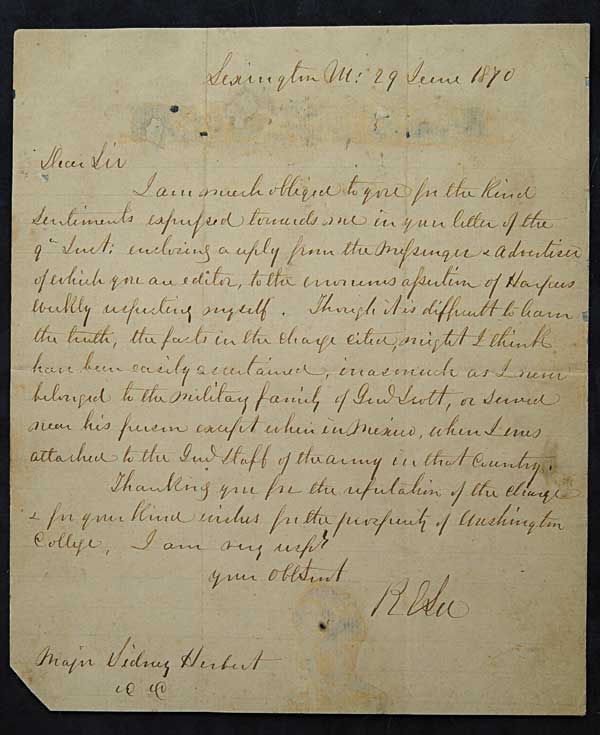 Lexington Va: 29 June 1870
Dear Sir
I am much obliged to you for the kind
sentiments expressed towards me in your letter of the
9th Inst: enclosing a reply from the Messenger & Advertiser
of which you are editor, to the erroneous assertion of Harpers
Weekly respecting myself. Though it is difficult to learn
the truth, the facts in the charge cited, might I think
have been easily ascertained, inasmuch as I never
belonged to the military family of Genl Scott, or served
near his person except when in Mexico, when I was
attached to the Genl Staff of the army in that Country.
Thanking you for the refutation of the charge
& for your kind wishes for the prosperity of Washington
College, I am very respy
your obt Servt
R E Lee
Major Sidney Herbert